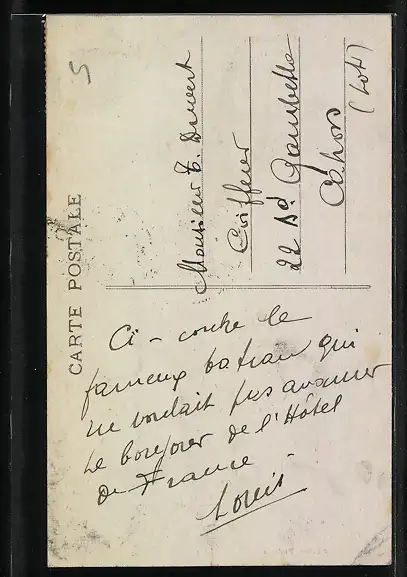 5
CARTE POSTALE
Monsieur E. Druvert
Coiffeur
22 Bd Gambetta
Cahors
(Lot)
Ci-contre le
fameux bateau qui
ne voulait pas avancer
Le bonjour de l'Hôtel
de France
Louis